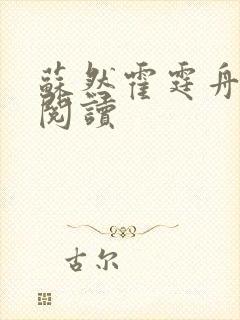 蘇然霍霆舟
閱讀
古尔